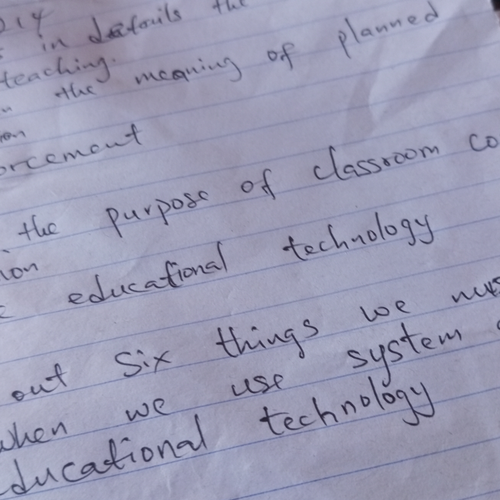 in details the
teaching.
the meaning of planned
the purpose of classroom co
educational technology
out six things we mus
when we use system
educational technology